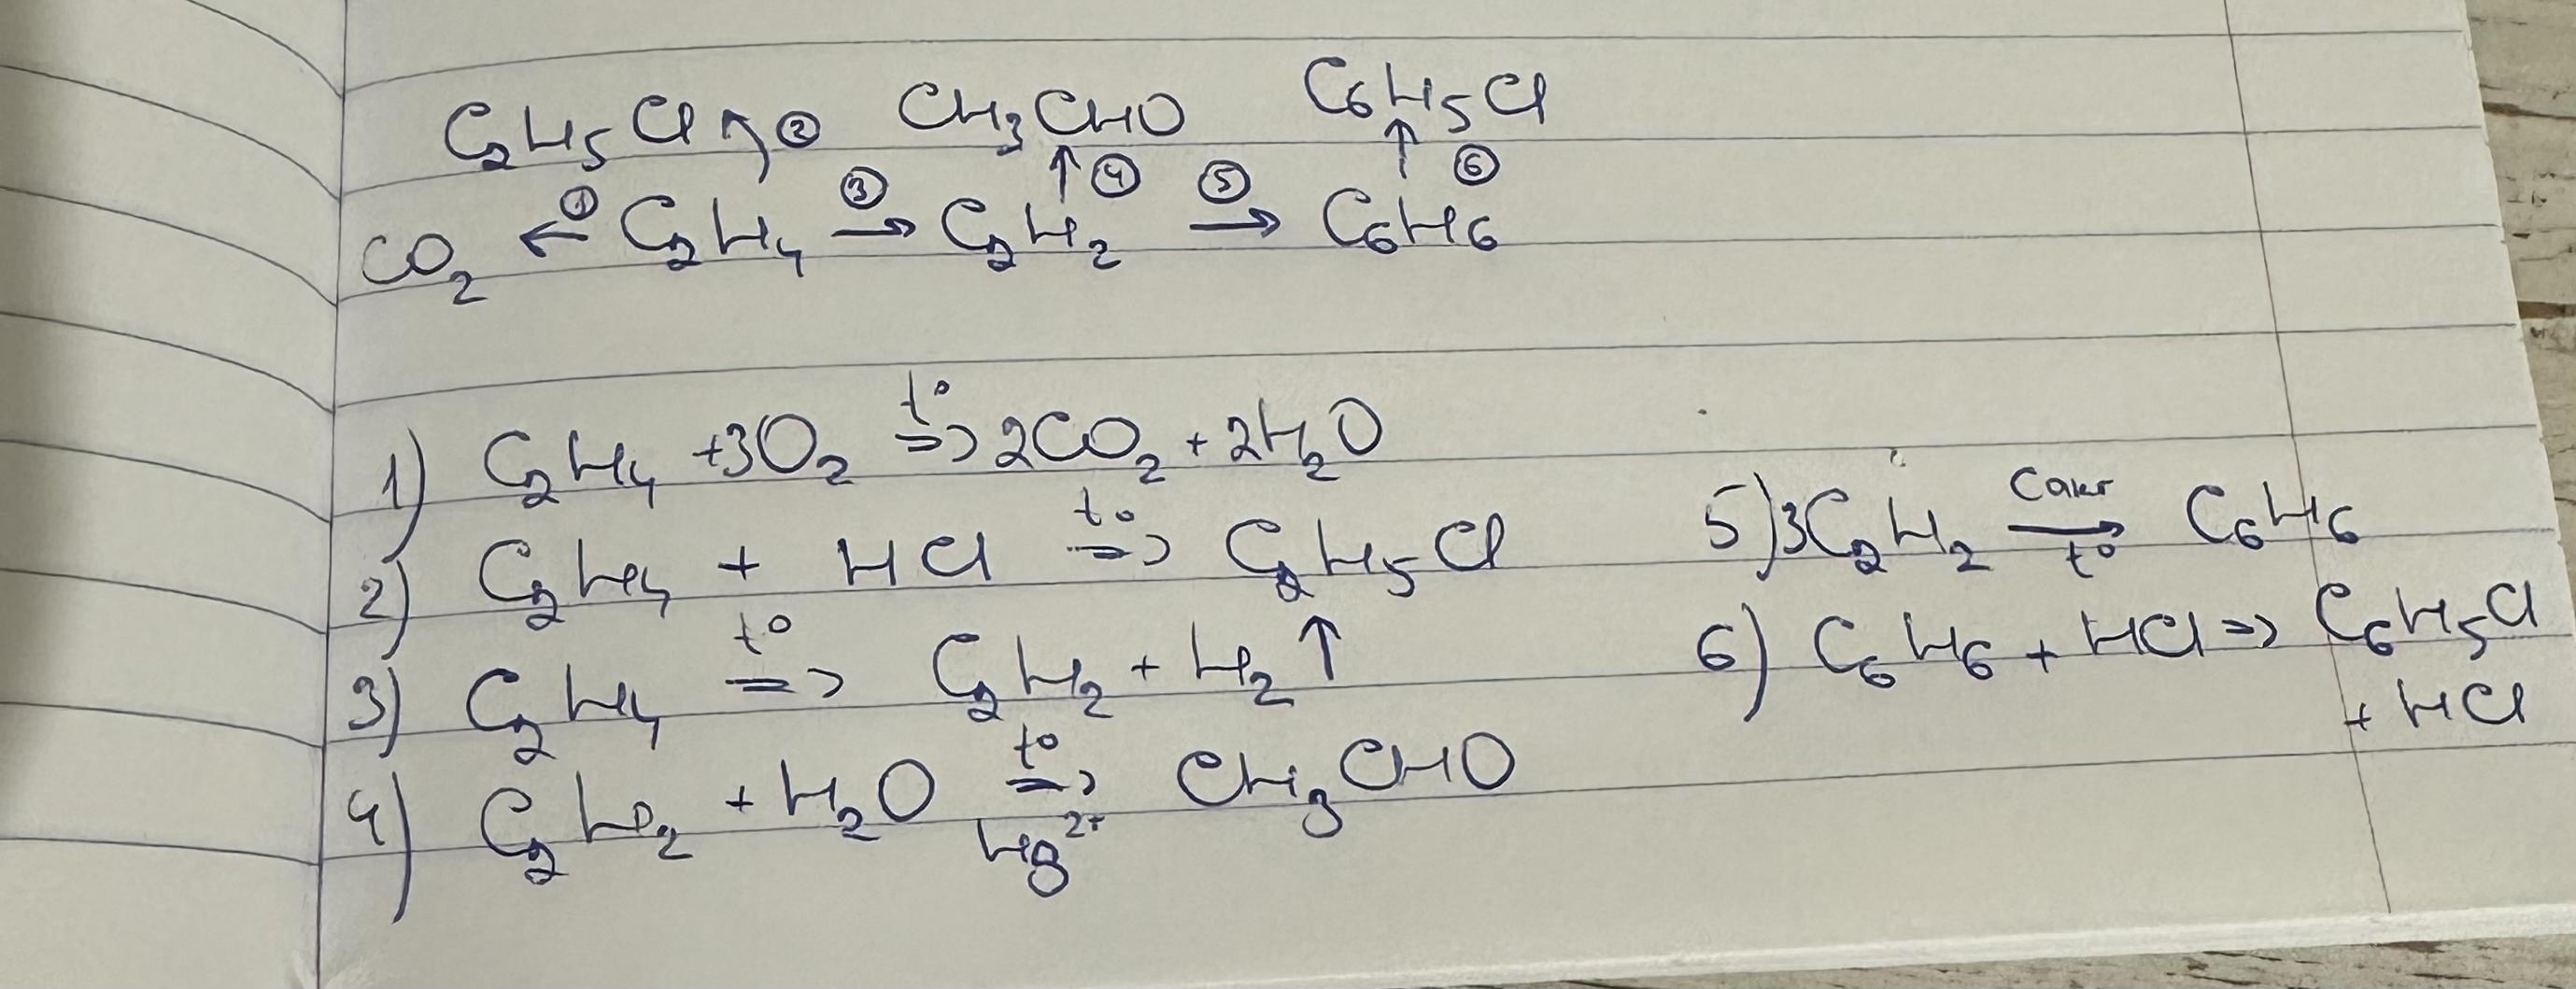 C₂H₅Cl ↖ ② CH₃CHO C₆H₅Cl
↑ ④ ↑ ⑥
CO₂ ←① C₂H₄ ③→ C₂H₂ ⑤→ C₆H₆
1) C₂H₄ + 3O₂ t°=> 2CO₂ + 2H₂O
2) C₂H₄ + HCl t°=> C₂H₅Cl
3) C₂H₄ t°=> C₂H₂ + H₂↑
4) C₂H₂ + H₂O t°=> Hg²⁺ CH₃CHO
5) 3C₂H₂ Cакт → t° C₆H₆
6) C₆H₆ + HCl => C₆H₅Cl
+ HCl